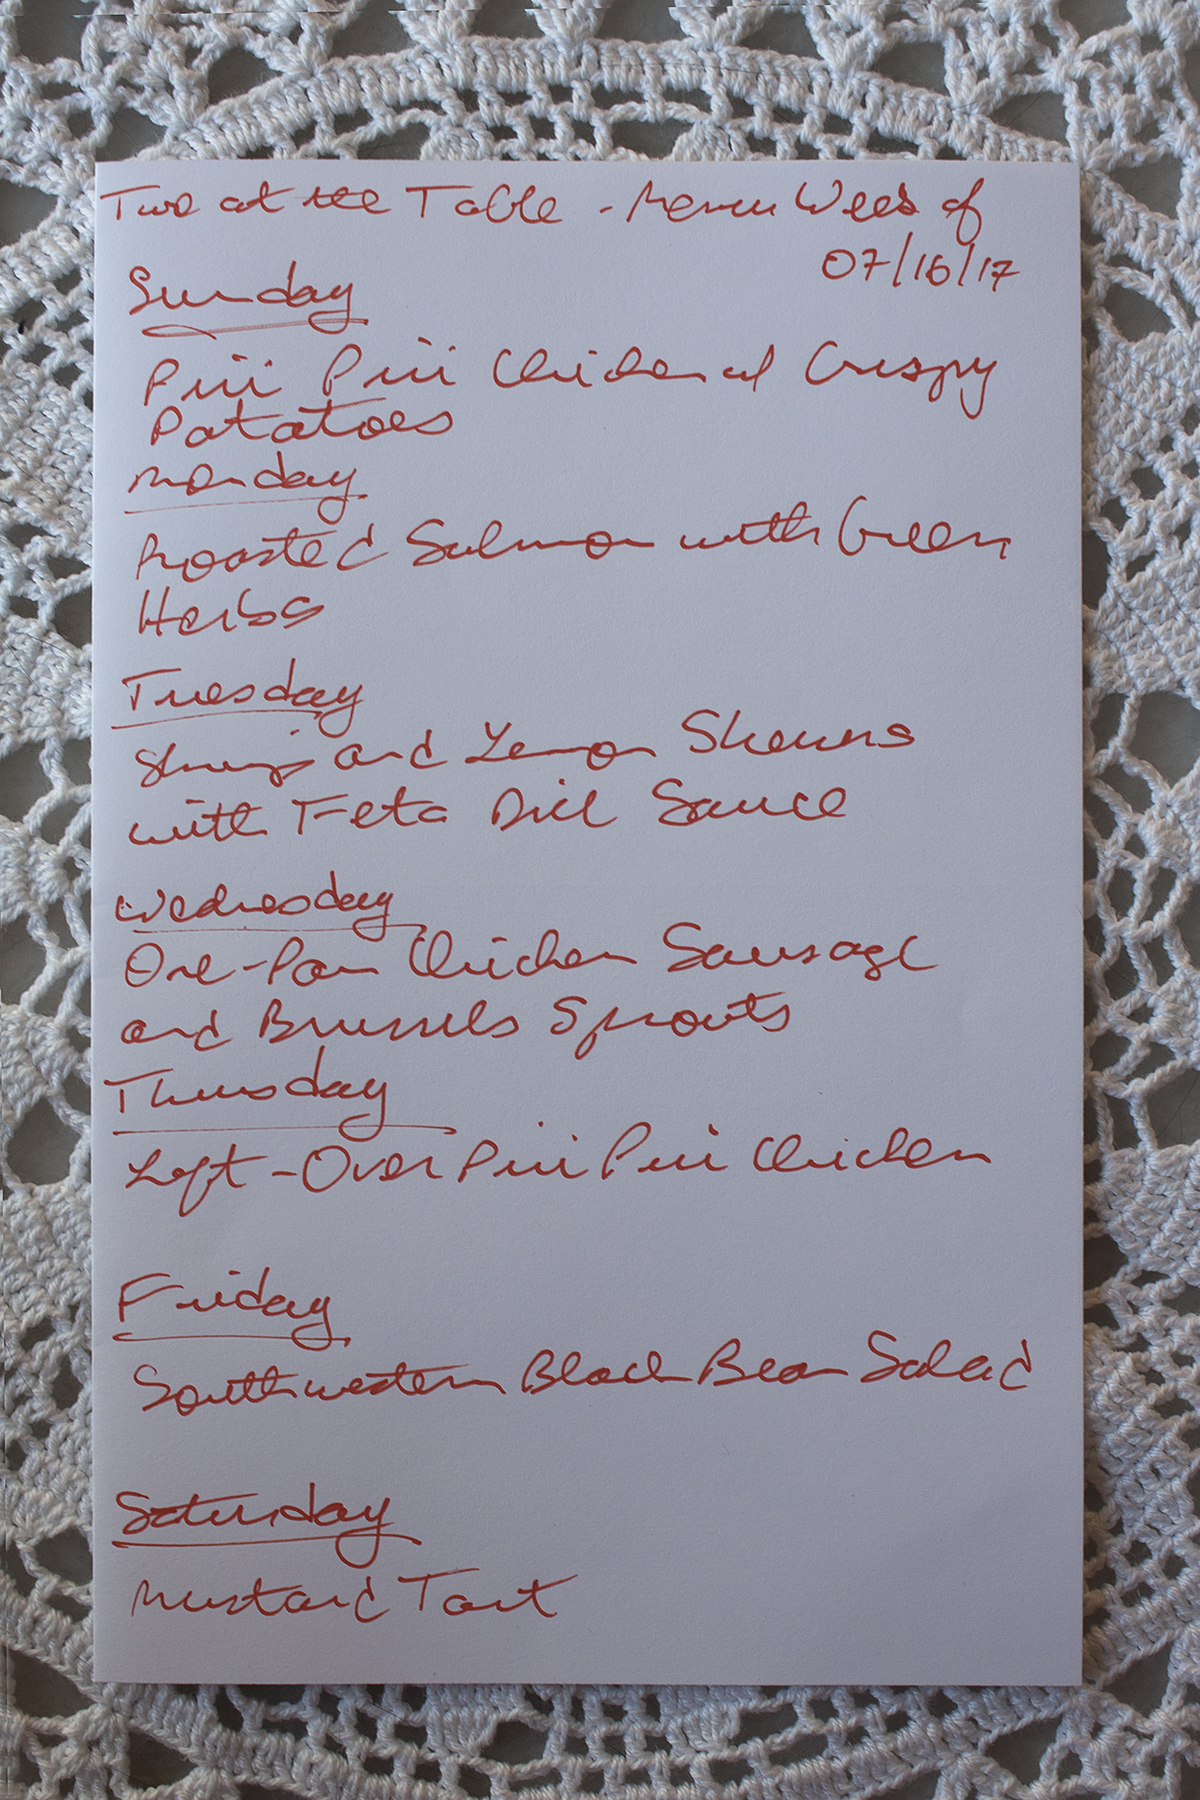 Two at the Table - Menu Week of
07/16/17
Sunday
Piri Piri Chicken w/ Crispy
Potatoes
Monday
Roasted Salmon with Green
Herbs
Tuesday
Shrimp and Lemon Skewers
with Feta Dill Sauce
Wednesday
One-Pan Chicken Sausage
and Brussels Sprouts
Thursday
Left-Over Piri Piri Chicken
Friday
Southwestern Black Bean Salad
Saturday
Mustard Tart